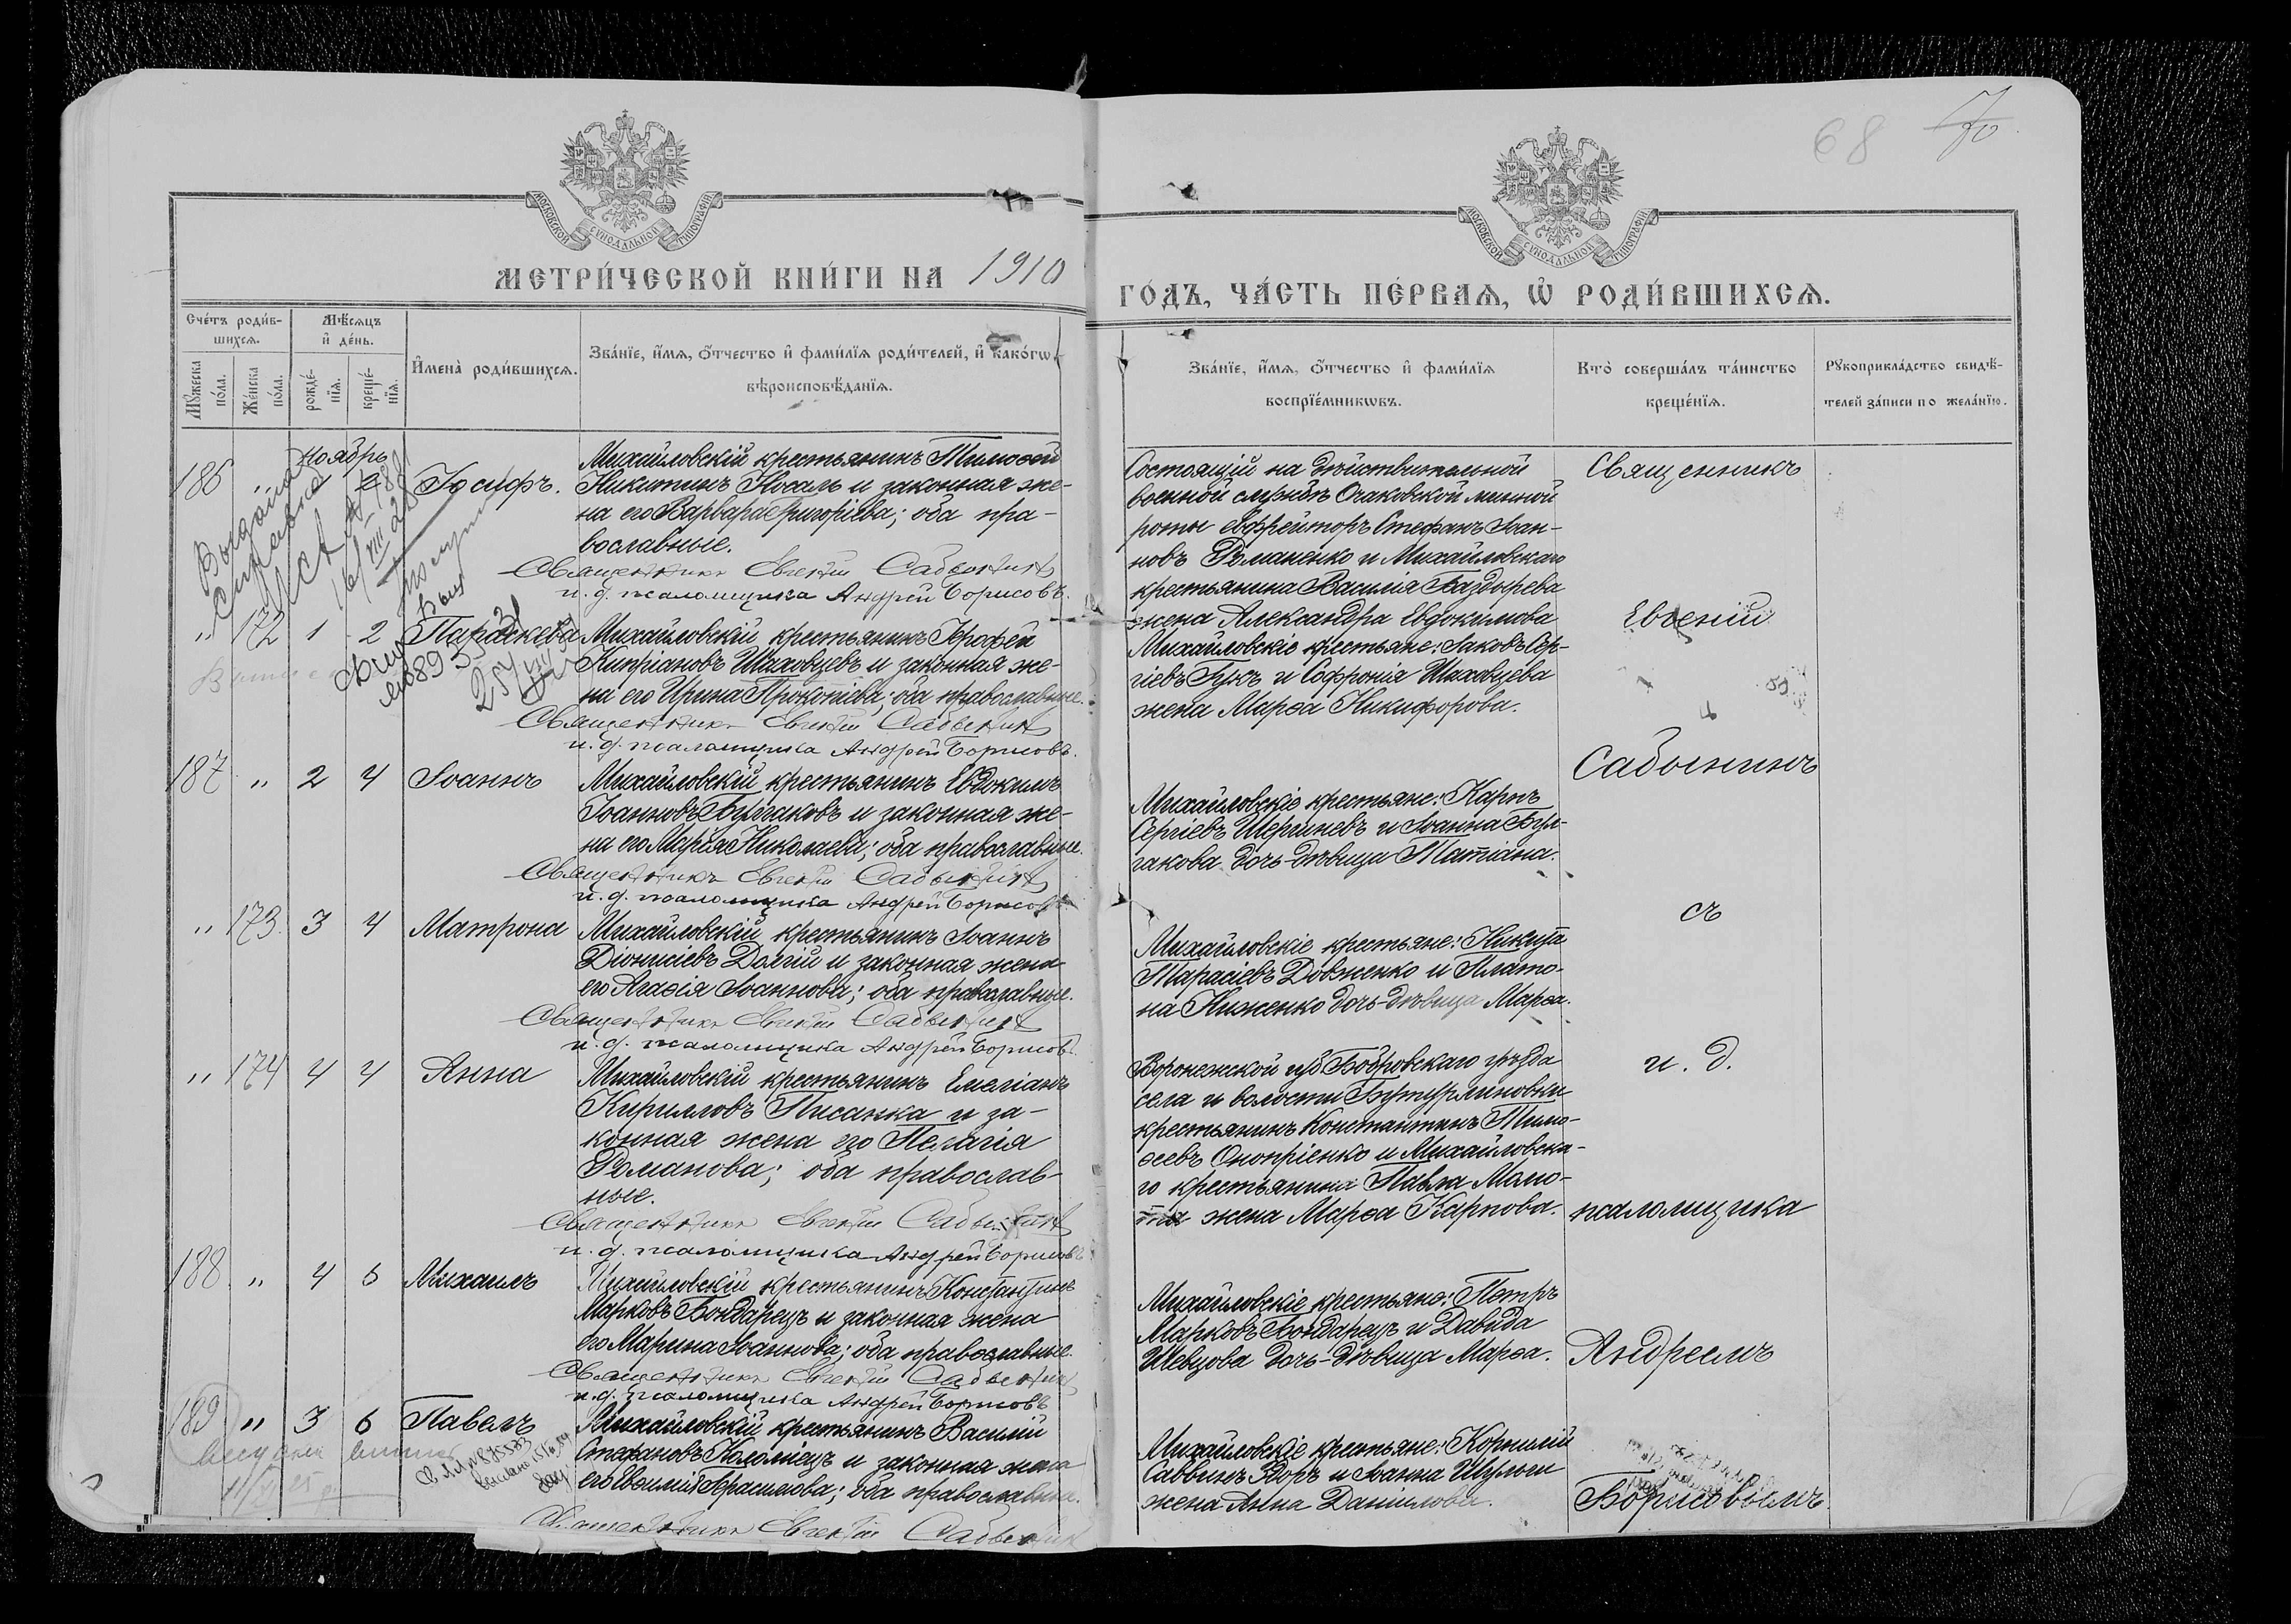 68 70
МОСКОВСКОЙ СѴНОДАЛЬНОЙ ТИПОГРАФІИ
МОСКОВСКОЙ СѴНОДАЛЬНОЙ ТИПОГРАФІИ
МЕТРИ́ЧЕСКОЙ КНИ́ГИ НА 1910
ГО́ДЪ, ЧА́СТЬ ПЕ́РВАѦ, Ѡ҆ РОДИ́ВШИХСѦ.
Сче́тъ роди́в-
шихсѧ.
Мꙋ́жеска по́ла.
Же́нска по́ла.
Мѣ́сѧцъ
и҆ де́нь.
рожде́-
нїѧ.
креще́-
нїѧ.
И҆мена̀ роди́вшихсѧ.
Зва́нїе, и҆́мѧ, ѻ҆́тчество и҆ фами́лїѧ роди́телей, и҆ како́гѡ
вѣроисповѣ́данїѧ.
Зва́нїе, и҆́мѧ, ѻ҆́тчество и҆ фами́лїѧ
воспрїе́мникѡвъ.
Кто̀ соверша́лъ та́инство
креще́нїѧ.
Рꙋкоприкла́дство свидѣ́-
телей за́писи по жела́нїю.
Ноябрь
186 " Іосифъ.
Михайловскій крестьянинъ Тимоѳей
Никитинъ Носаль и законная же-
на его Варвара Григоріева; оба пра-
вославные.
Священникъ Евгеній Сабынинъ
и. д. псаломщика Андрей Борисовъ.
Состоящій на дѣйствительной
военной службѣ Очаковской минной
роты ефрейторъ Стефанъ Іоан-
новъ Романенко и Михайловскаго
крестьянина Василія Баздырева
жена Александра Евдокимова
Священникъ
" 172 1 2 Параскева
Михайловскій крестьянинъ Ерофей
Кипріановъ Шаховцевъ и законная же-
на его Ирина Прокопіева; оба православные.
Священникъ Евгеній Сабынинъ
и. д. псаломщика Андрей Борисовъ.
Михайловскіе крестьяне: Іаковъ Сер-
гіевъ Гукъ и Софронія Шаховцева
жена Марѳа Никифорова.
Евгеній
187 " 2 4 Іоаннъ
Михайловскій крестьянинъ Евдокимъ
Іоанновъ Булгаковъ и законная же-
на его Марія Николаева; оба православные.
Священникъ Евгеній Сабынинъ
и. д. псаломщика Андрей Борисовъ.
Михайловскіе крестьяне: Карпъ
Сергіевъ Шергиневъ и Іоанна Бул-
гакова дочь-дѣвица Татіана.
Сабынинъ
" 173 3 4 Матрона
Михайловскій крестьянинъ Іоаннъ
Діонисіевъ Долгій и законная жена
его Агаѳія Іоаннова; оба православные.
Священникъ Евгеній Сабынинъ
и. д. псаломщика Андрей Борисовъ.
Михайловскіе крестьяне: Никита
Тарасіевъ Довженко и Плато-
на Ниженко дочь-дѣвица Марѳа.
съ
" 174 4 4 Анна
Михайловскій крестьянинъ Емеліанъ
Кирилловъ Писанка и за-
конная жена его Пелагія
Романова; оба православ-
ные.
Священникъ Евгеній Сабынинъ
и. д. псаломщика Андрей Борисовъ
Воронежской губ Бобровскаго уѣзда
села и волости Бутурлиновки
крестьянинъ Константинъ Тимо-
ѳеевъ Оноприенко и Михайловска-
го крестьянина Павла Мамо-
жена Марѳа Карпова.
и. д.
псаломщика
188 " 4 6 Михаилъ
Михайловскій крестьянинъ Константинъ
Марковъ Бондарецъ и законная жена
его Марина Іоаннова; оба православные.
Священникъ Евгеній Сабынинъ
и. д. псаломщика Андрей Борисовъ
Михайловскіе крестьяне: Петръ
Марковъ Бондарецъ и Давида
Шевцова дочь-дѣвица Марѳа.
Андреемъ
189 " 3 6 Павелъ
Михайловскій крестьянинъ Василій
Стефановъ Коломіецъ и законная жена
его Евѳимія Герасимова; оба православные.
Священникъ Евгеній Сабынинъ
Михайловскіе крестьяне: Корнилій
Саввинъ Здоръ и Іоанна Шульги
жена Анна Даніилова.
Борисовымъ